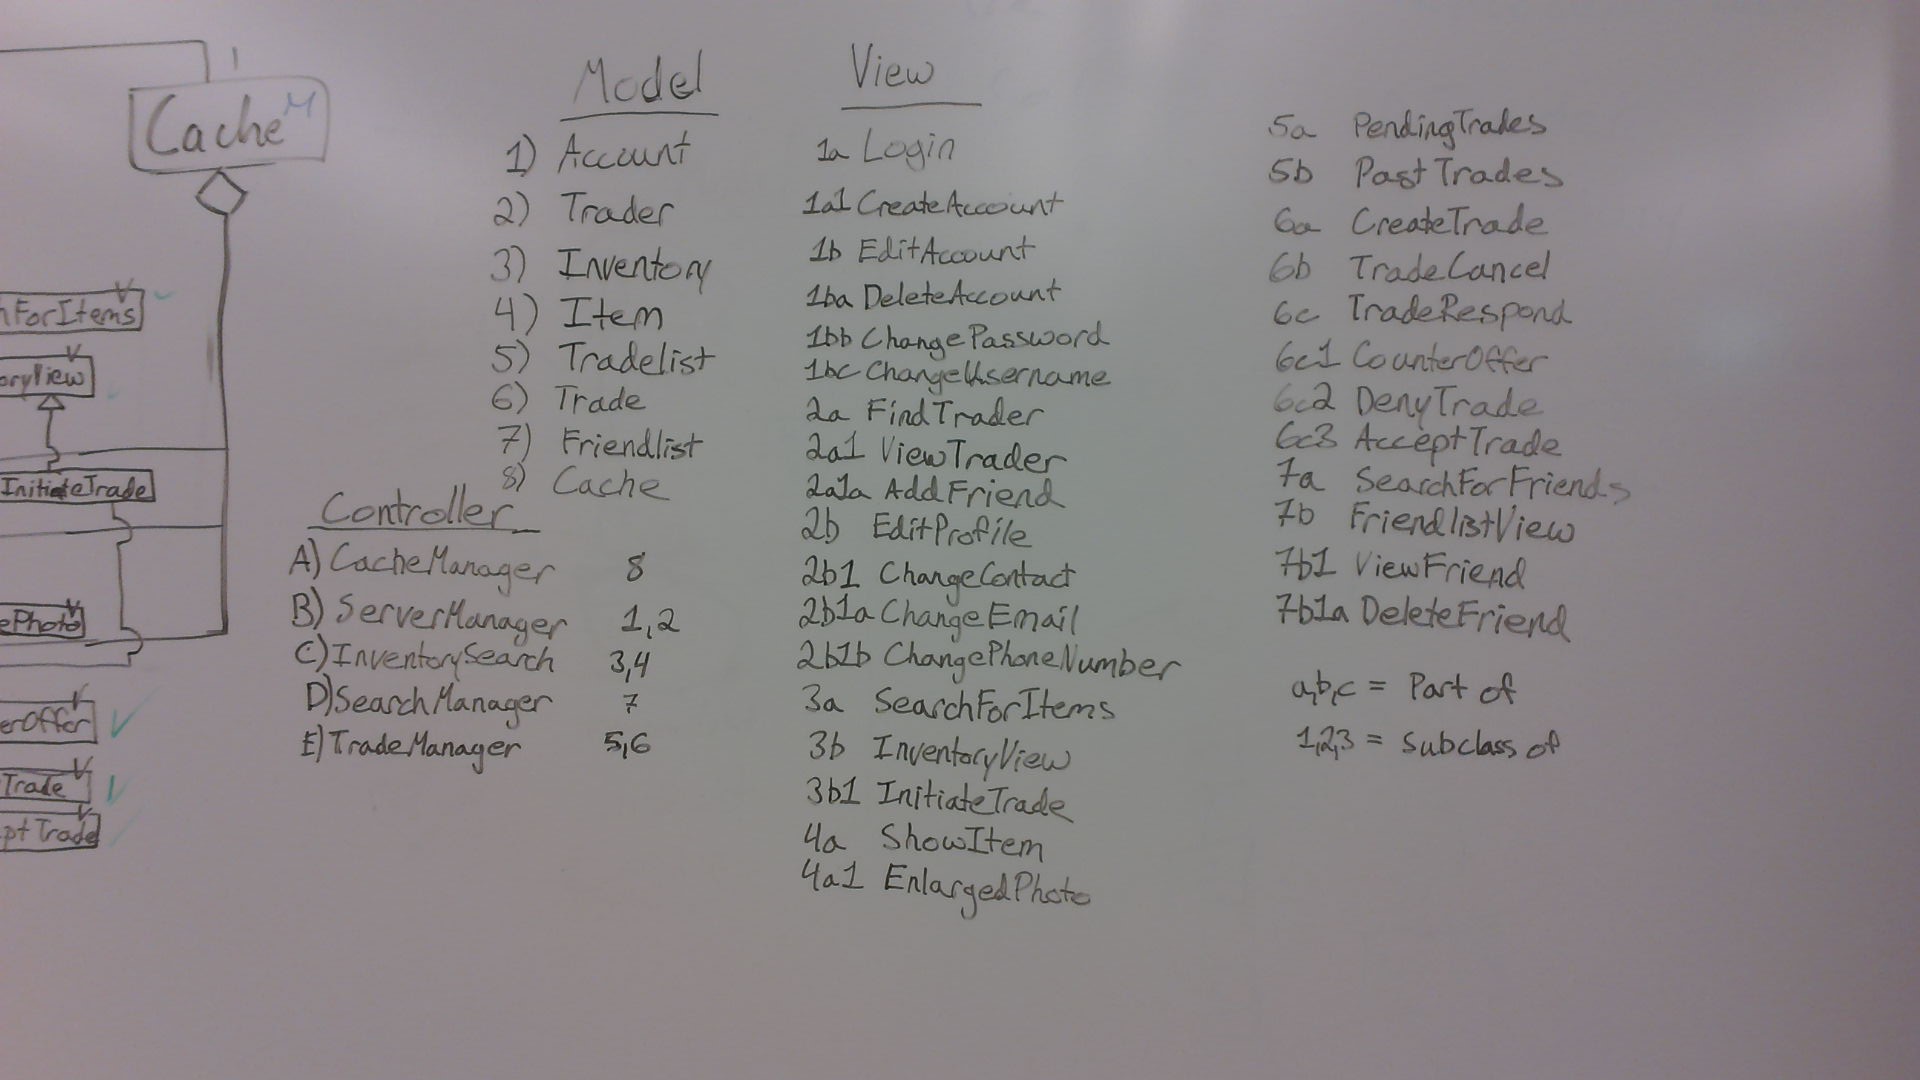 1
Cache M
hForItems V
oryView V
InitiateTrade
ePhoto V
erOffer V
Trade V
ptTrade V
Model
1) Account
2) Trader
3) Inventory
4) Item
5) Tradelist
6) Trade
7) Friendlist
8) Cache
Controller
A) CacheManager 8
B) ServerManager 1,2
C) InventorySearch 3,4
D) SearchManager 7
E) TradeManager 5,6
View
1a Login
1a1 CreateAccount
1b EditAccount
1ba DeleteAccount
1bb ChangePassword
1bc ChangeUsername
2a FindTrader
2a1 ViewTrader
2a1a AddFriend
2b EditProfile
2b1 ChangeContact
2b1a ChangeEmail
2b1b ChangePhoneNumber
3a SearchForItems
3b InventoryView
3b1 InitiateTrade
4a ShowItem
4a1 EnlargedPhoto
5a PendingTrades
5b PastTrades
6a CreateTrade
6b TradeCancel
6c TradeRespond
6c1 CounterOffer
6c2 DenyTrade
6c3 AcceptTrade
7a SearchForFriends
7b FriendlistView
7b1 ViewFriend
7b1a DeleteFriend
a,b,c = Part of
1,2,3 = Subclass of